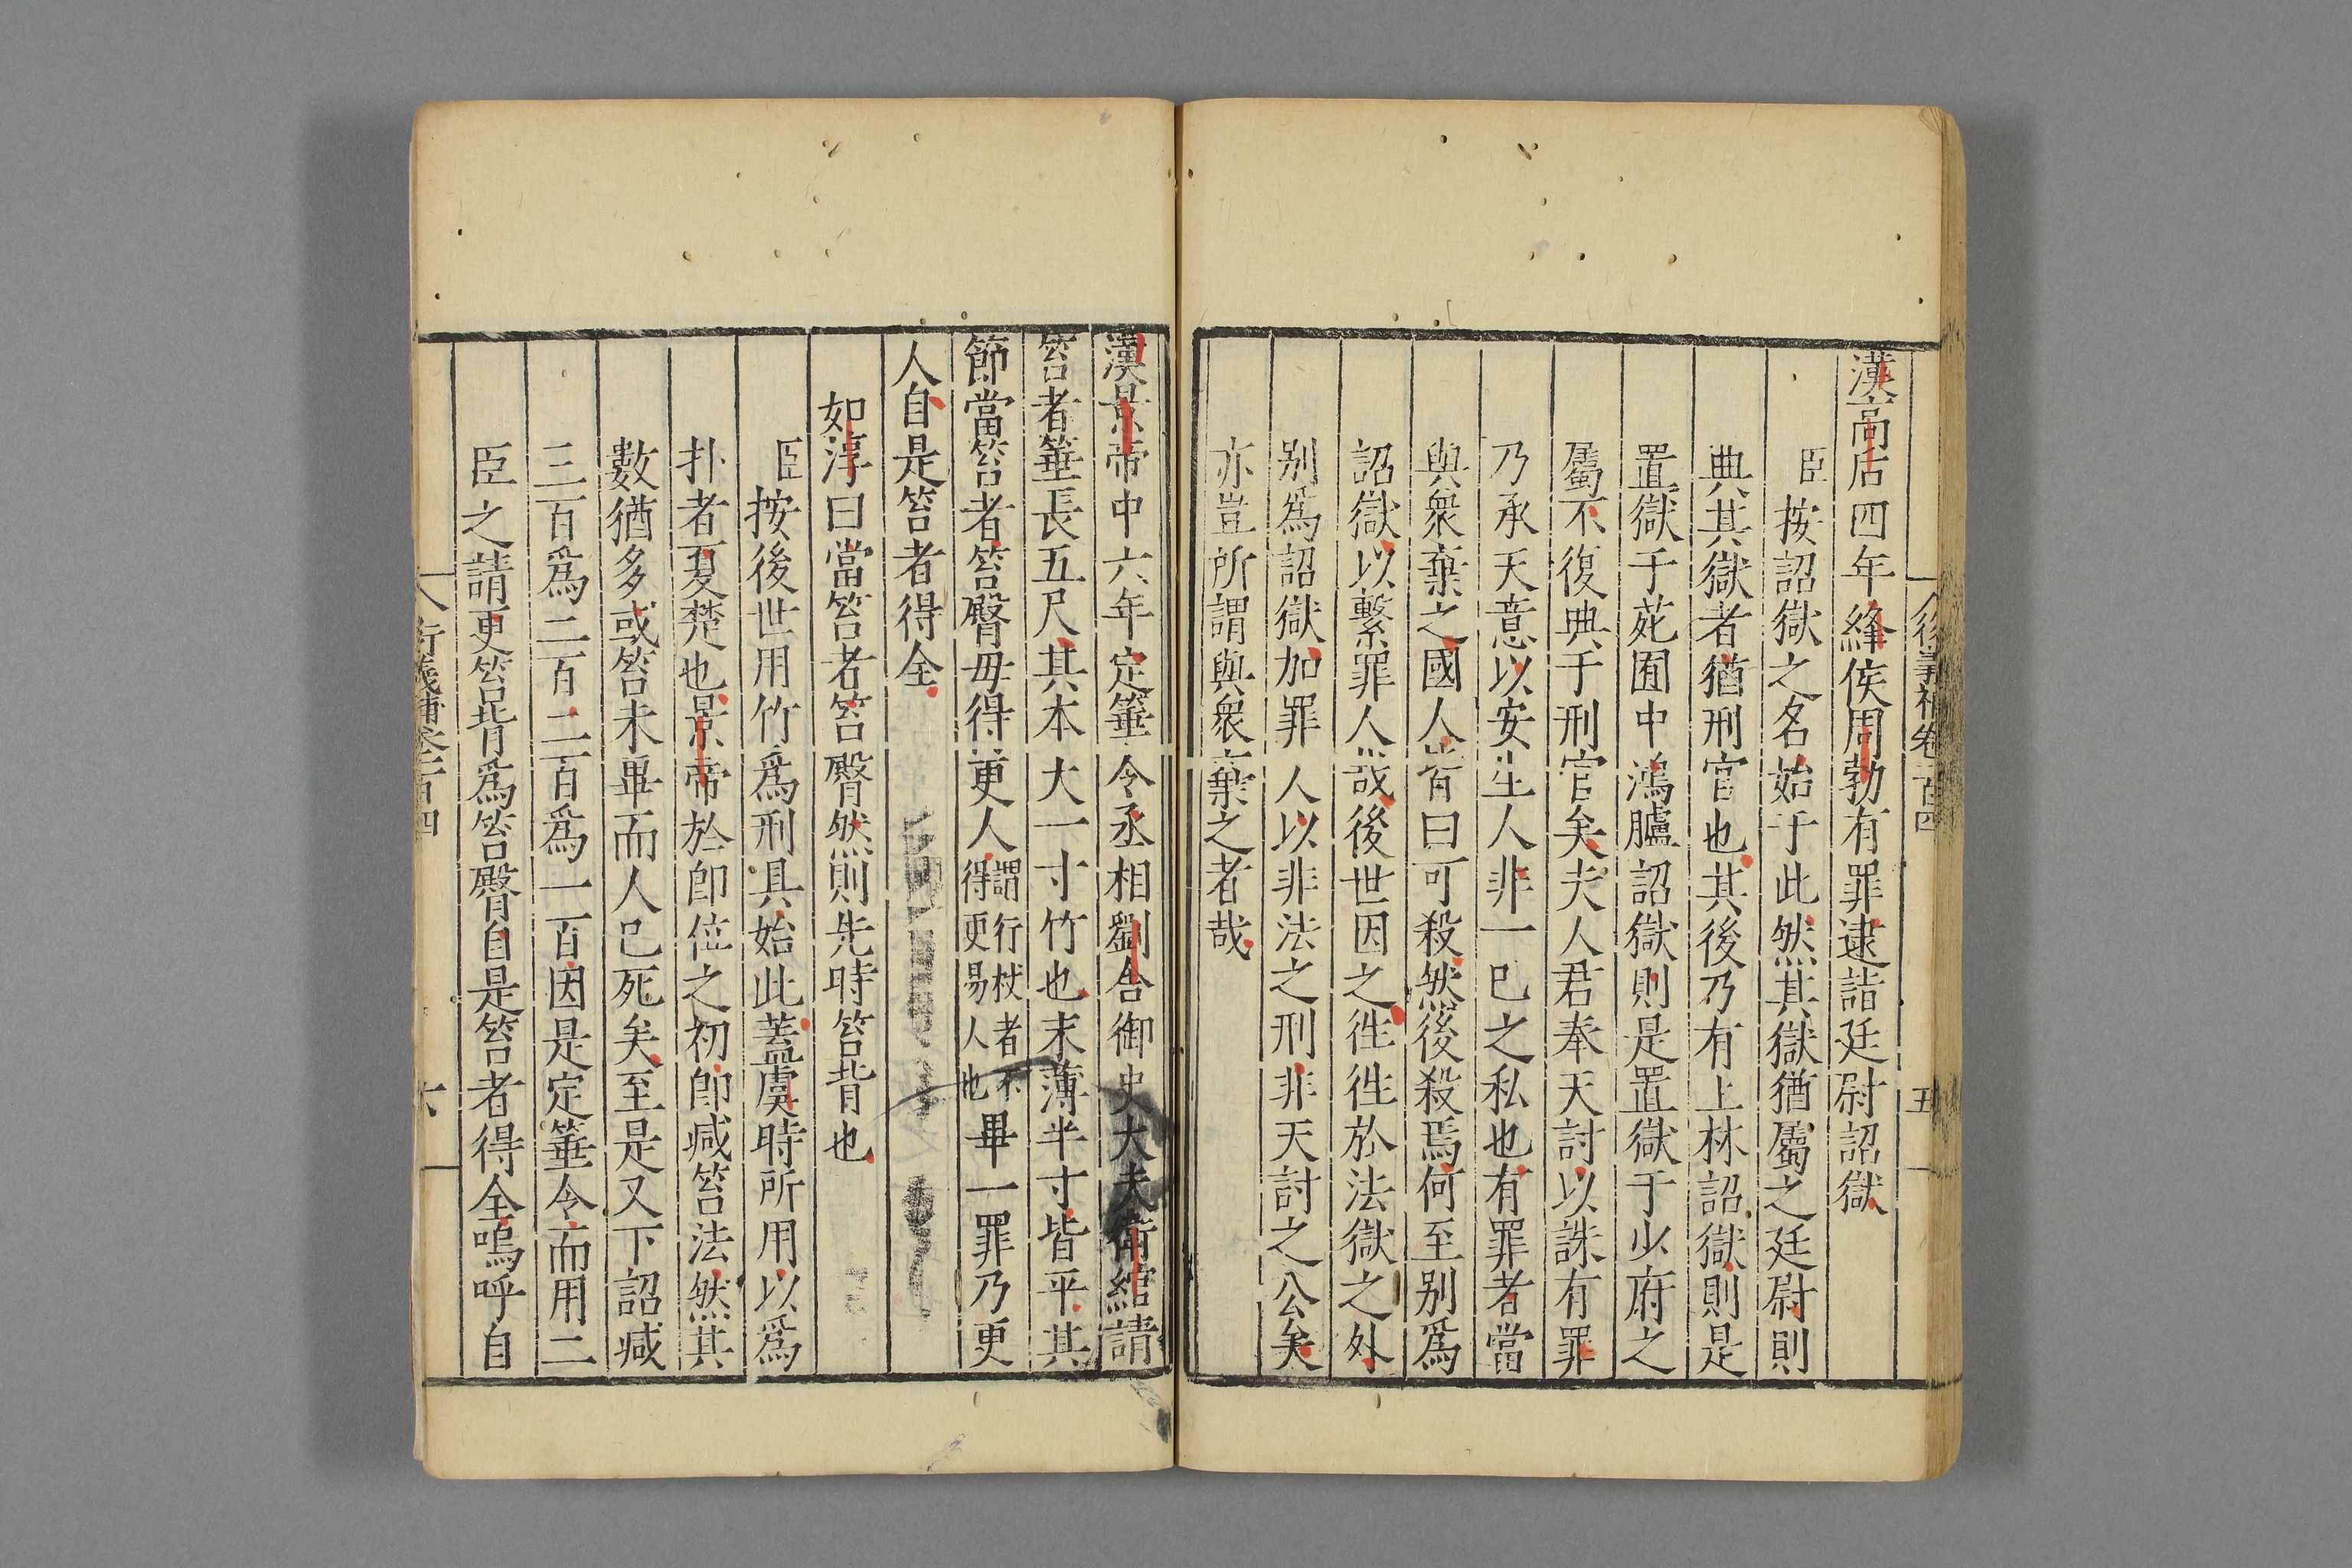 漢高后四年絳侯周勃有罪逮詣廷尉詔獄
臣按詔獄之名始于此然其獄猶屬之廷尉則
典其獄者猶刑官也其後乃有上林詔獄則是
置獄于苑囿中鴻臚詔獄則是置獄于少府之
屬不復典于刑官矣夫人君奉天討以誅有罪
乃承天意以安生人非一已之私也有罪者當
與衆棄之國人皆曰可殺然後殺焉何至别爲
詔獄以繫罪人哉後世因之徃徃於法獄之外
别爲詔獄加罪人以非法之刑非天討之公矣
亦豈所謂與衆棄之者哉
漢景帝中六年定箠令丞相劉舍御史大夫衛綰請
笞者箠長五尺其本大一寸竹也末薄半寸皆平其
節當笞者笞臀毋得更人謂行杖者不得更易人也畢一罪乃更
人自是笞者得全
如淳曰當笞者笞臀然則先時笞背也
臣按後世用竹爲刑具始此蓋虞時所用以爲
扑者夏楚也景帝於卽位之初卽减笞法然其
數猶多或笞未畢而人已死矣至是又下詔减
三百爲二百二百爲一百因是定箠令而用二
臣之請更笞背爲笞臀自是笞者得全嗚呼自
衍義補卷一百四 六